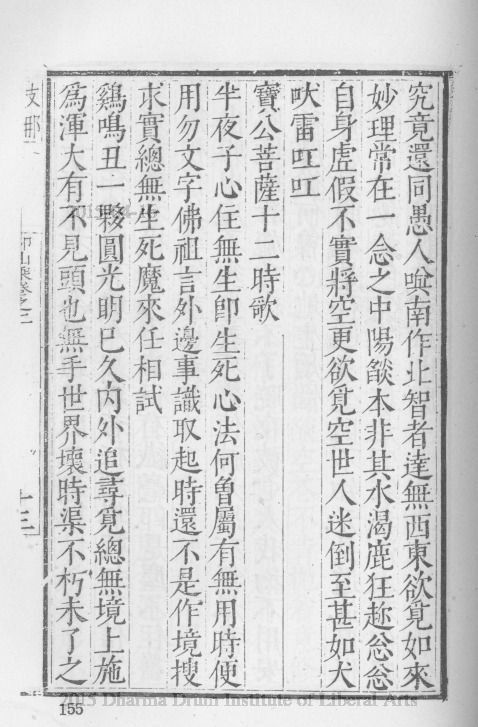 究竟還同愚人喚南作北智者達無西東欲覓如來
妙理常在一念之中陽燄本非其水渴鹿狂趂忩忩
自身虛假不實將空更欲覓空世人迷倒至甚如犬
吠雷吽吽
寶公菩薩十二時歌
半夜子心住無生卽生死心法何曾屬有無用時便
用勿文字佛祖言外邊事識取起時還不是作境搜
求實總無生死魔來任相試
鷄鳴丑一顆圓光明巳久內外追尋覓總無境上施
爲渾大有不見頭也無手世界壞時渠不朽未了之
支那
十三
155
2015 Dharma Drum Institute of Liberal Arts